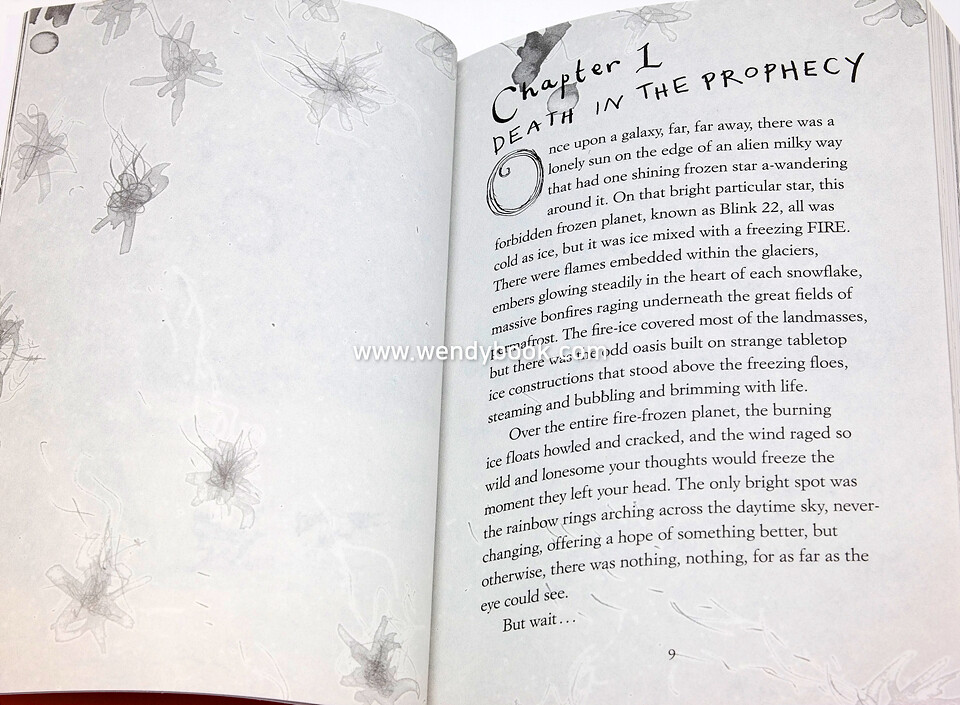 Chapter 1
DEATH IN THE PROPHECY
Once upon a galaxy, far, far away, there was a
lonely sun on the edge of an alien milky way
that had one shining frozen star a-wandering
around it. On that bright particular star, this
forbidden frozen planet, known as Blink 22, all was
cold as ice, but it was ice mixed with a freezing FIRE.
There were flames embedded within the glaciers,
embers glowing steadily in the heart of each snowflake,
massive bonfires raging underneath the great fields of
permafrost. The fire-ice covered most of the landmasses,
www.wendybook.com
but there was the odd oasis built on strange tabletop
ice constructions that stood above the freezing floes,
steaming and bubbling and brimming with life.
Over the entire fire-frozen planet, the burning
ice floats howled and cracked, and the wind raged so
wild and lonesome your thoughts would freeze the
moment they left your head. The only bright spot was
the rainbow rings arching across the daytime sky, never-
changing, offering a hope of something better, but
otherwise, there was nothing, nothing, for as far as the
eye could see.
But wait...
9